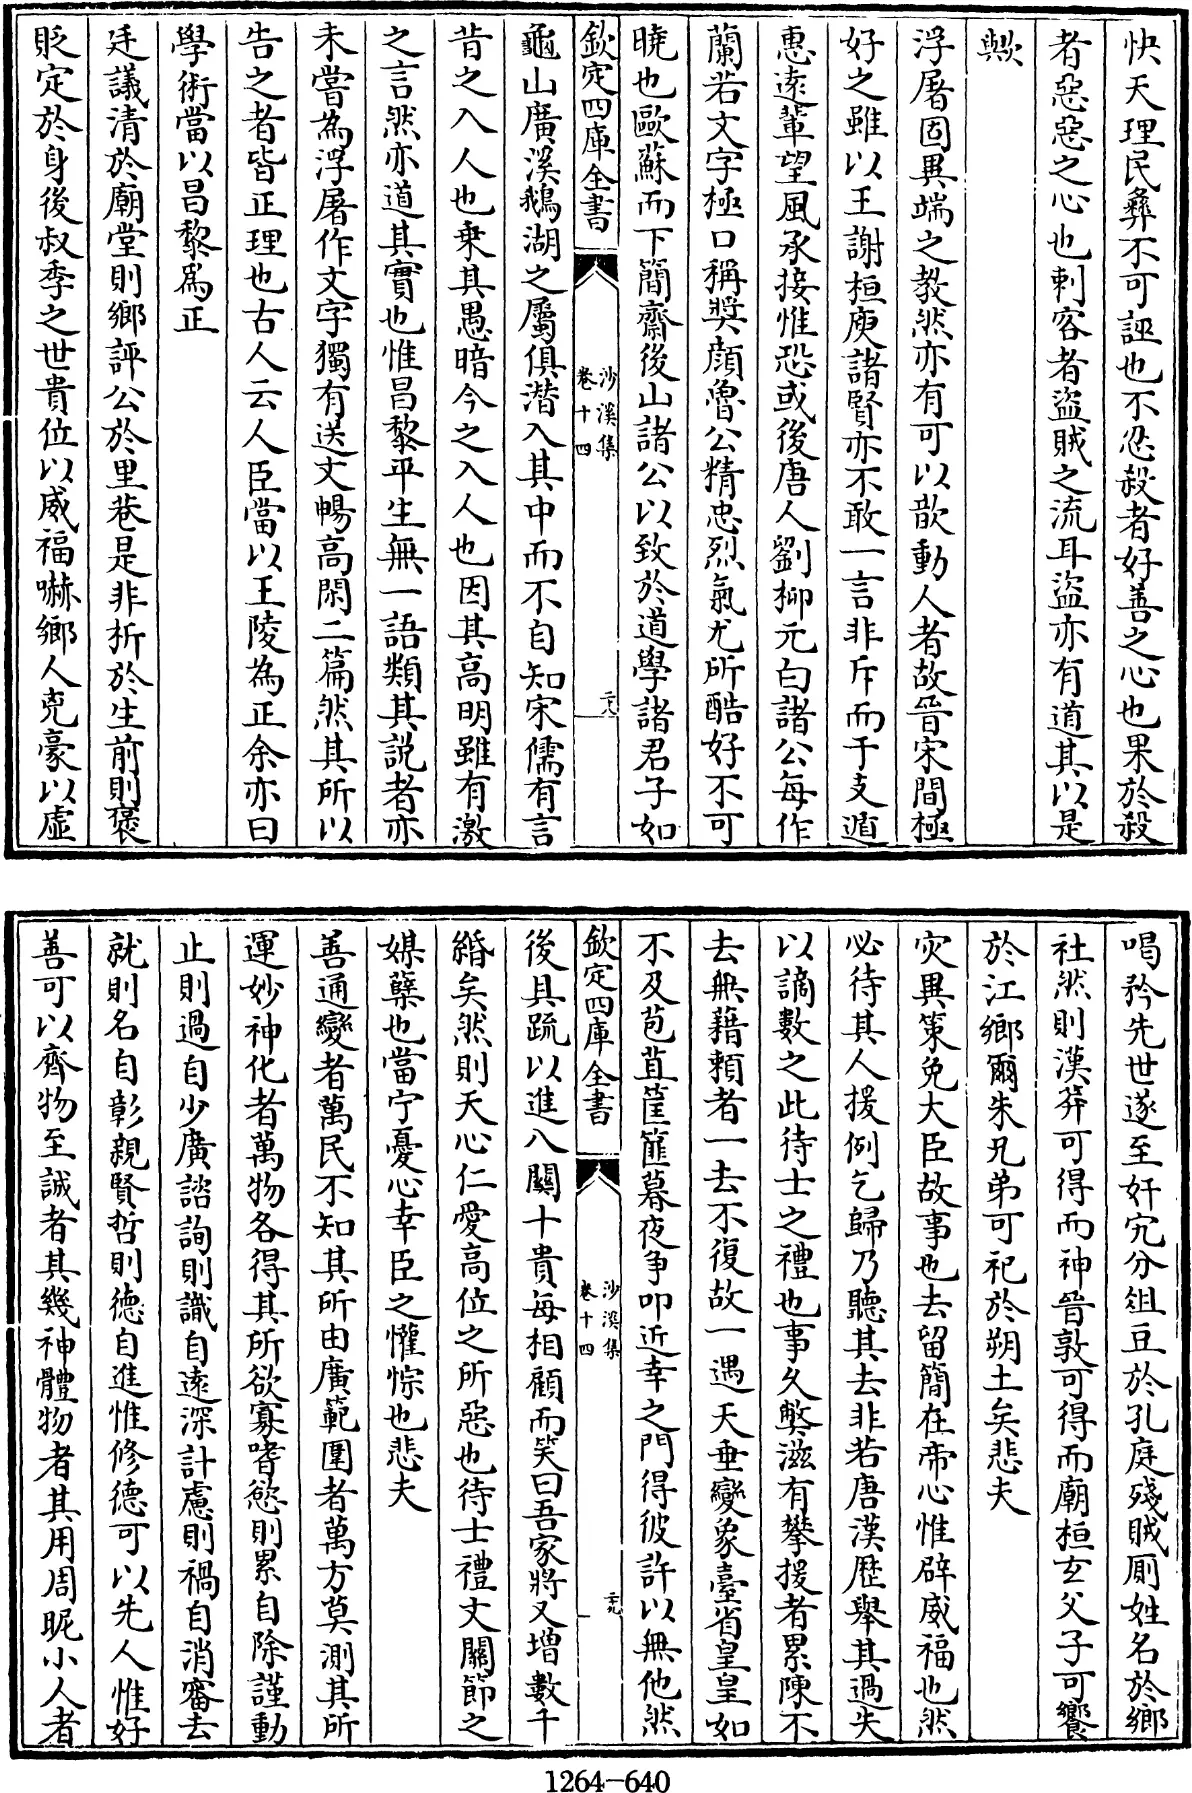 快天理民彝不可誣也不忍殺者好善之心也果於殺
者惡惡之心也刺客者盜賊之流耳盜亦有道其以是
歟
浮屠固異端之教然亦有可以歆動人者故晉宋間極
好之雖以王謝桓庾諸賢亦不敢一言非斥而于支遁
惠遠輩望風承接惟恐或後唐人劉栁元白諸公每作
蘭若文字極口稱奬顔魯公精忠烈氣尤所酷好不可
曉也歐蘇而下簡齋後山諸公以致於道學諸君子如
欽定四庫全書
沙溪集
卷十四
二十八
龜山廣溪鵝湖之屬俱潛入其中而不自知宋儒有言
昔之入人也乗其愚暗今之入人也因其高明雖有激
之言然亦道其實也惟昌黎平生無一語類其説者亦
未嘗為浮屠作文字獨有送文暢高閑二篇然其所以
告之者皆正理也古人云人臣當以王陵為正余亦曰
學術當以昌黎爲正
廷議清於廟堂則鄉評公於里巷是非析於生前則褒
貶定於身後叔季之世貴位以威福嚇鄉人兇豪以虛
喝矜先世遂至奸宄分俎豆於孔庭殘賊厠姓名於鄉
社然則漢莽可得而神晉敦可得而廟桓玄父子可饗
於江鄉爾朱兄弟可祀於朔土矣悲夫
灾異策免大臣故事也去留簡在帝心惟辟威福也然
必待其人援例乞歸乃聽其去非若唐漢歴舉其過失
以謫數之此待士之禮也事久弊滋有攀援者累陳不
去無藉賴者一去不復故一遇天垂變象臺省皇皇如
不及苞苴筐篚暮夜爭叩近幸之門得彼許以無他然
欽定四庫全書
沙溪集
卷十四
二十九
後具疏以進八關十貴每相顧而笑曰吾家將又增數千
緡矣然則天心仁愛高位之所惡也待士禮文關節之
媒蘖也當宁憂心幸臣之懽悰也悲夫
善通變者萬民不知其所由廣範圍者萬方莫測其所
運妙神化者萬物各得其所欲寡嗜慾則累自除謹動
止則過自少廣諮詢則識自遠深計慮則禍自消審去
就則名自彰親賢哲則德自進惟修德可以先人惟好
善可以齊物至誠者其幾神體物者其用周昵小人者
1264-640